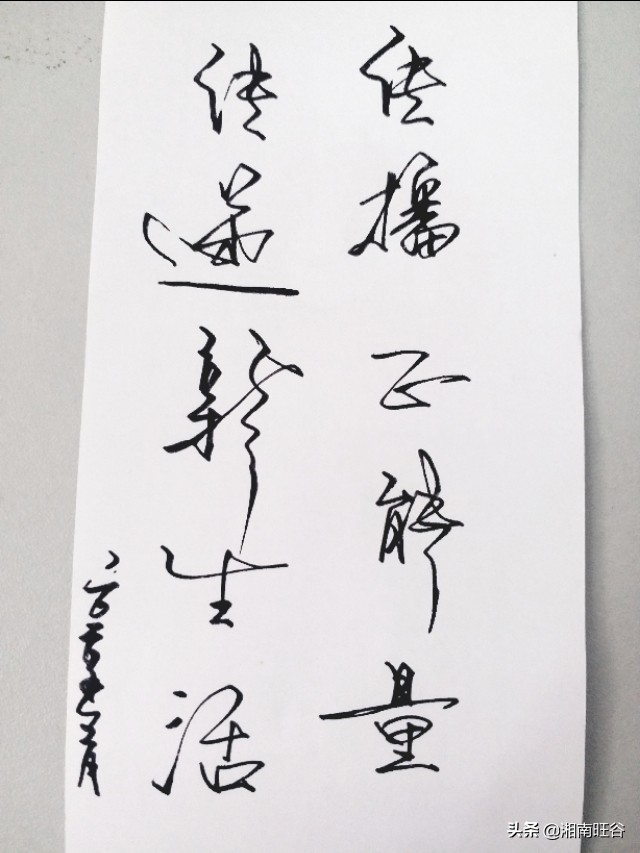 传播正能量
传递新生活
头条 @湘南旺谷